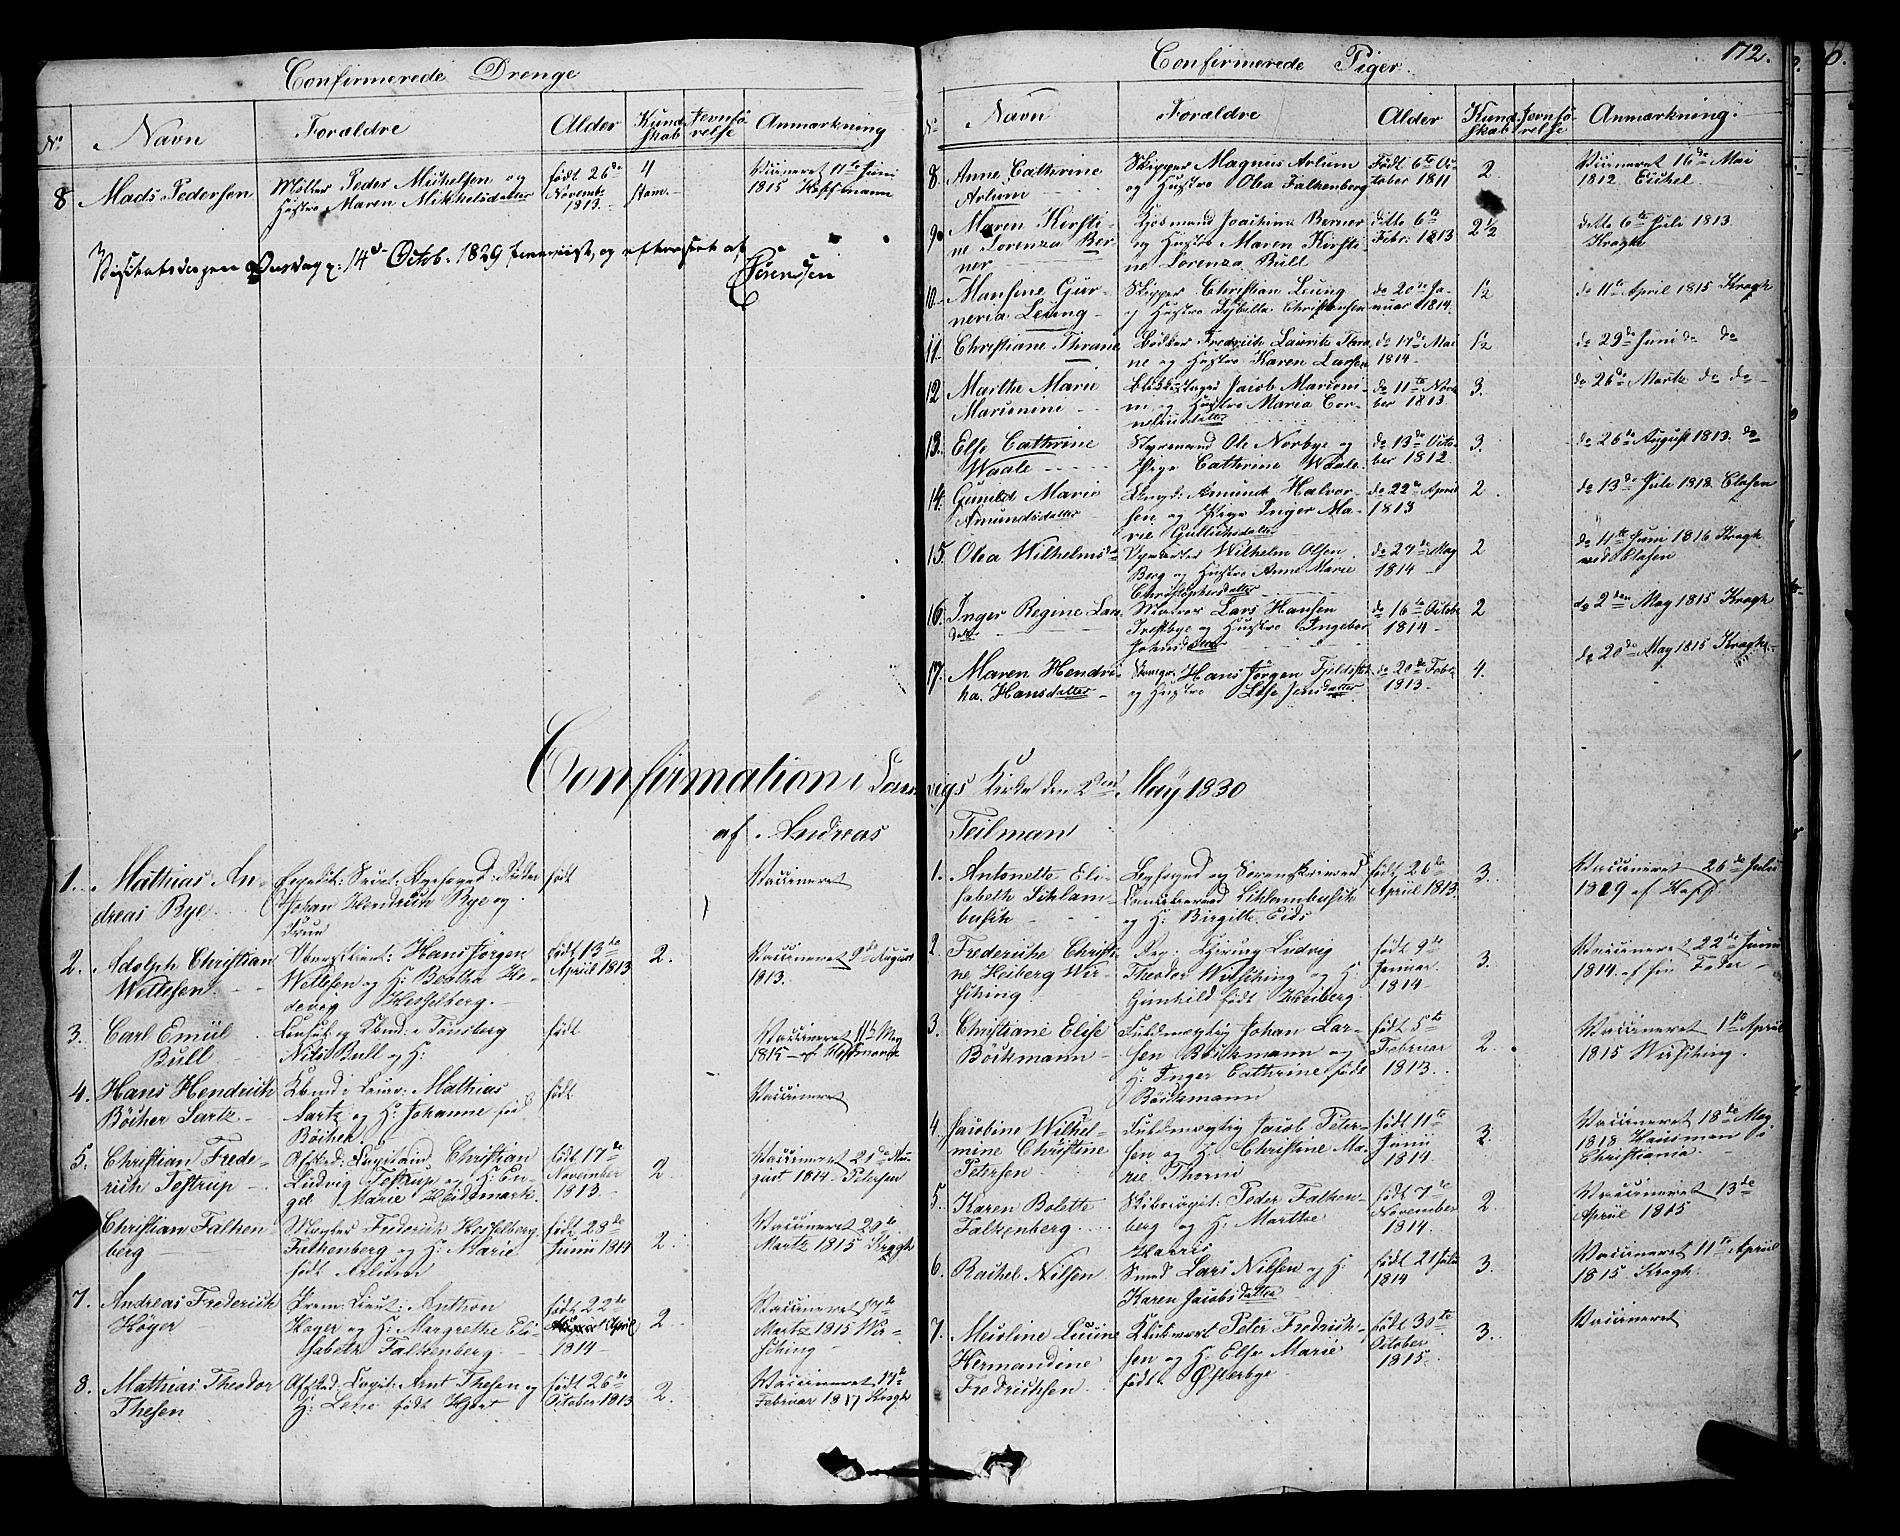 Confirmerede Drenge
No
Navn
Forældre
Alder
Kund skab
Jevnfø relse
Anmærkning
8 Mads Pedersen
Møller Peder Michelsen og
Hustru Maren Mikkelsdatter
født 26de
Novemb.
1813.
4
Vaccineret 11te Juni
1815 Hoffmann
Visitatsdagen Onsdag 14de Octob. 1829 og efterseet af
Sørenssen
Confirmerede Piger.
172.
No
Navn
Forældre
Alder
Kund skab
Jevnfø relse
Anmærkning.
8. Anne Cathrine
Arlum
Skipper Magnus Arlum
og Hustru Olea Falkenberg
Født 6te Oc
tober 1811
2
Vaccineret 16de Mai
1812 Eickel
9. Maren Kirsti-
ne Lorenza Ber
ner
Joachim Berner
og Hustru Maren Kirsti-
ne Lorenza Bull
ditto 6te
Febr: 1813
2 1/2
ditto 6te Juli 1813
Kragh
10. Mansine Gur-
neria Leung
Skipper Christian Leung
og Hustru Sybilla Christensen
do 20de Ja-
nuar 1814.
1 1/2
do 11te April 1815 Kragh
11. Christiane Thrane
Bødker Fredrich Lauritz Thra
ne og Hustru Karen Larsen
do 17de Mai
1814.
1 1/2
do 29de Juni do do
12 Marthe Marie
Marienini
Jacob Marieni-
ni og Hustru Maria Cor-
neliusdatter
do 11te Nov
ber 1813.
3.
do 26de Martz do do
13. Else Cathrine
Waale
Styrmand Ole Norbye og
Pige Cathrine Waale.
do 13de Octo-
ber 1812.
3.
do 26te August 1813. do
14. Gunild Marie
Amundsdatter
Amund Halvor-
sen og Pige Inger Ma-
rie Gulliksdatter
do 22de April
1813
2
do 13de Juli 1818 Clasen
15. Olea Wilhelmsdr
Wilhelm Olsen
Berg og Hustru Anne Marie
Christophersdatter
do 27de May
1814
2
do 11te Juni 1816 Kragh
Clasen
16. Inger Regine Lars
datr
Matros Lars Hansen
Trestbye og Hustru Ingebor
Johnsdatter
do 16te Octob
1814
2
do 2den May 1815 Kragh
17. Maren Hendri-
ka Hansdatter
Hans Jörgen
og Hustru Else Jensdatter
do 20de Febr.
1813.
4.
do 20de May 1815 Kragh
Confirmation i Laurvigs Kirke den 2den May 1830
af Andreas Teilman
1. Mathias An-
dreas Bye
Johan Hendrich Bye og
født
Vaccineret
2. Adolph Christian
Wettesen
Hans Jørgen
Wettesen og H: Beatha He-
devig Hesselberg.
født 13de
April 1813
2.
Vaccineret 9de August
1813.
3. Carl Emiil
Bull
Consul og Kbmd: i Tønsberg
Niels Bull og H:
født
Vaccineret 11te May
1815 af Hoffmann
4. Hans Hendrich
Böcher Sartz
Kbmd i Laurv: Mathias
Sartz og H: Johanne fød
Böcher
født
Vaccineret
5. Christian Frede-
rich Testrup
Afsked: Capitaind Christian
Ludvig Testrup og H: En-
gel Marie Heidemark.
født 17de
November
1813.
2
Vaccineret 21de Au-
gust 1814 Petersen
Christian Falken
berg
Frederich Hesselberg
Falkenberg og H: Marie
født Arlum
født 28de
Junii 1814
2.
Vaccineret 29de
Martz 1815 Kragh
7. Andreas Frederich
Høyer
Prem: Lieut: Anthon
Høyer og H: Margrethe Eli-
sabeth Falkenberg
født 22de
April
1814
2
Vaccineret 17de
Martz 1815 Wir-
sching
8. Mathias Theodor
Thesen
Afsked: Capit: Arnt Thesen og
H: Lene født Hjort
født 26de
October 1813
2.
Vaccineret 17de
Februar 1817 Kragh
1. Antonette Eli-
sabeth Schlam-
busch
Byfoged og Sorenskriver
Schlambusch
og H: Birgitte Eids
født 26de
April 1813
3.
Vaccineret 26de Julii
1819 af Hoff
2. Frederiche Christi-
ne Heiberg Wir-
sching
Reg: Chirurg Ludvig
Theodor Wirsching og H
Gunhild født Heiberg.
født 9de
Januar
1814
3.
Vaccineret 22de Junii
1814. af sin Fader
3. Christiane Elise
Böckmann
Fuldmægtig Johan Lar-
sen Böckmann og
H: Inger Cathrine født
Böckmann
født 5te
Februar
1813.
2.
Vaccineret 1te April
1815 Wirsching.
4. Jacobine Wilhel-
mine Christine
Petersen
Fuldmægtig Jacob Peter-
sen og H: Christine Ma-
rie Thorni
født 11te
Junii
1814
Vaccineret 18de May
1818 Hausman i
Christiania
5. Karen Bolette
Falkenberg
Peder Falken-
berg og H: Marthe
Harris
født 7de
November
1814.
2.
Vaccineret 13de
April 1815
6. Rachel Nilsen
Smed Lars Nilsen og H
Karen Jacobsdatter
født 21 Julii
1814
3.
Vaccineret 11te April
1815 Kragh
7. Meoline Lucine
Hermandine
Fredrichsen
Peter Fredrich-
sen og H: Else Marie
født Østerbye
født 30te
October
1815.
3.
Vaccineret